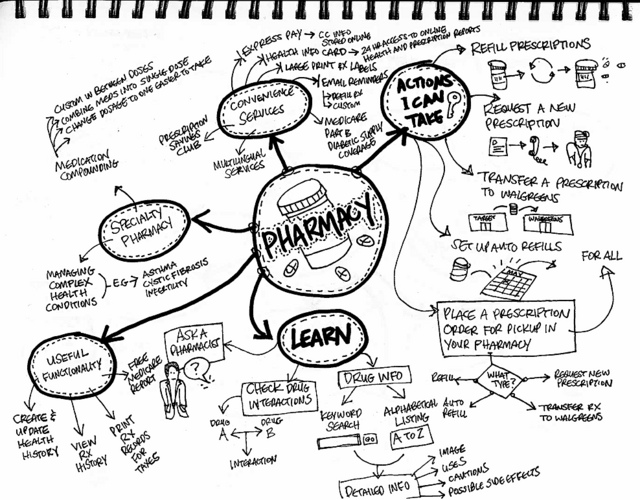 PHARMACY
CONVENIENCE
SERVICES
EXPRESS PAY → CC INFO
STORED ONLINE
HEALTH INFO CARD → 24 HR ACCESS TO ONLINE
HEALTH AND PRESCRIPTION REPORTS
LARGE PRINT RX LABELS
EMAIL REMINDERS
REFILL RX
CUSTOM
MEDICARE
PART B
DIABETIC SUPPLY
COVERAGE
MULTILINGUAL
SERVICES
PRESCRIPTION
SAVINGS
CLUB
ACTIONS
I CAN
TAKE
REFILL PRESCRIPTIONS
REQUEST A NEW
PRESCRIPTION
TRANSFER A PRESCRIPTION
TO WALGREENS
TARGET
WALGREENS
SET UP AUTO REFILLS
MAY
FOR ALL
PLACE A PRESCRIPTION
ORDER FOR PICKUP IN
YOUR PHARMACY
WHAT
TYPE?
REFILL
AUTO
REFILL
REQUEST NEW
PRESCRIPTION
TRANSFER RX
TO WALGREENS
SPECIALTY
PHARMACY
CUSTOM IN BETWEEN DOSES
COMBINING MEDS INTO SINGLE DOSE
CHANGE DOSAGE TO ONE EASIER TO TAKE
MEDICATION
COMPOUNDING
MANAGING
COMPLEX
HEALTH
CONDITIONS
E.G →
ASTHMA
CYSTIC FIBROSIS
INFERTILITY
USEFUL
FUNCTIONALITY
FREE
MEDICARE
REPORT
CREATE &
UPDATE
HEALTH
HISTORY
VIEW
RX
HISTORY
PRINT
RX
RECORDS
FOR
TAXES
LEARN
ASK A
PHARMACIST
?
CHECK DRUG
INTERACTIONS
DRUG
A
DRUG
B
INTERACTION
DRUG INFO
KEYWORD
SEARCH
GO
ALPHABETICAL
LISTING
A TO Z
DETAILED INFO
IMAGE
USES
CAUTIONS
POSSIBLE SIDE EFFECTS